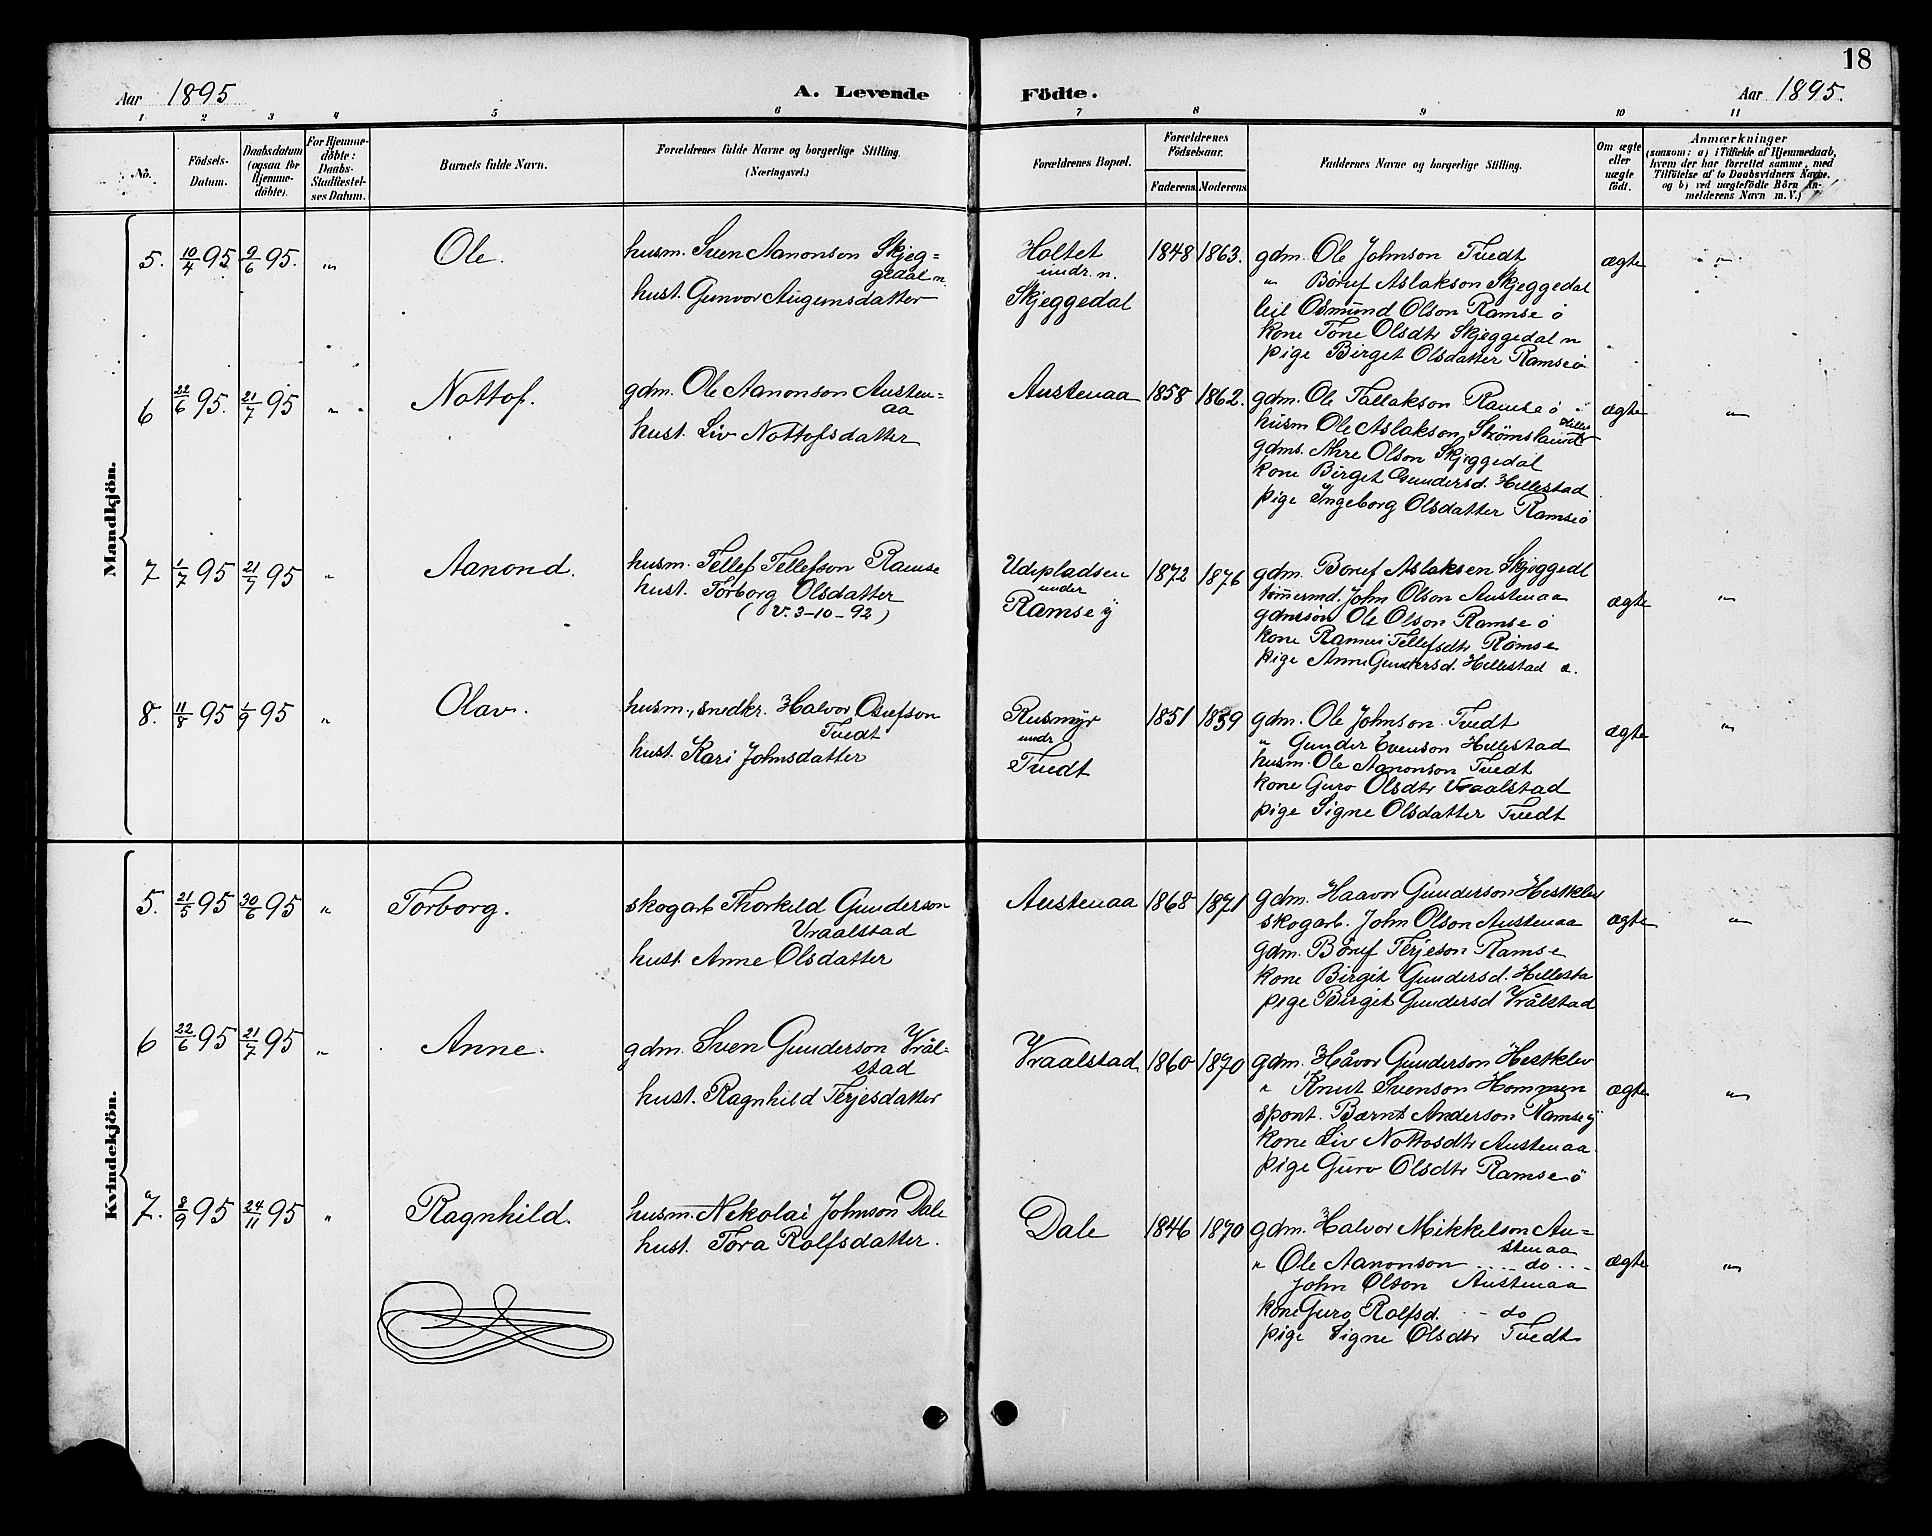 18
Aar 1895
A. Levende Födte.
Aar 1895.
1 2 3 4 5 6 7 8 9 10 11
No.
Födsels-Datum.
Daabsdatum (ogsaa for Hjemmedöbte).
For Hjemmedöbte: Daabs-Stadfæstelses Datum.
Barnets fulde Navn.
Forældrenes fulde Navne og borgerlige Stilling. (Næringsvei.)
Forældrenes Bopæl.
Forældrenes Födselsaar.
Faderens. Moderens.
Faddernes Navne og borgerlige Stilling.
Om ægte eller uægte födt.
Anmærkninger
(saasom: a) i Tilfælde af Hjemmedaab, hvem der har forrettet samme, med Tilföielse af to Daabsvidners Navne, og b) ved uægtefödte Börn Anmelderens Navn m. V.)
Mandkjön.
5. 10/4 95 9/6 95. " Ole.
husm. Sven Aanonson Skjeg=
gedal n.
hust. Gunvor Augunsdatter
Holtet
undr. n.
Skjeggedal
1848 1863.
gdm. Ole Johnson Tvedt
" Böruf Aslakson Skjeggedal
leil Osmund Olson Ramse ö
kone Tone Olsdtr Skjeggedal n
pige Birget Olsdatter Ramseö
ægte
6 22/6 95. 21/7 95 " Nottof.
gdm. Ole Aanonson Austen=
aa
hust. Liv Nottofsdatter
Austenaa
1858 1862.
gdm. Ole Tallakson Ramse ö
husm Ole Aslakson
gdms. Akre Olson Skjeggedal
kone Birget Gundersd. Hillestad
pige Ingeborg Olsdatter Ramseö
ægte "
7 1/7 95 21/7 95 " Aanond.
husm. Tellef Tellefson Ramse
hust. Torborg Olsdatter
(V. 3-10-92)
Udspladsen
under
Ramse y
1872 1876
gdm. Boruf Aslaksen Skjeggedl
tömermd. John Olson Austenaa
gdmsön Ole Olson Ramse ö
kone Rannei Tellefsdtr Ramse
pige Anne Gundersd. Hillestad
ægte "
8. 11/8 95 1/9 95 " Olav.
husm., snedkr. Halvor Osufson
Tvedt
hust. Kari Johnsdatter
Rusmyr
undr
Tvedt
1851 1859
gdm. Ole Johnson Tvedt
" Gunder Evenson Hillestad
husm. Ole Aanonson Tvedt
kone Guro Olsdtr Vraalstad
pige Signe Olsdatter Tvedt
ægte "
Kvindekjön.
5. 21/5 95 30/6 95 " Torborg.
skogarb Thorkild Gunderson
Vraalstad
hust. Anne Olsdatter
Austenaa
1868 1871
gdm. Haavor Gunderson Hestklev
skogarb. John Olson Austenaa
gdm. Böruf Terjeson Ramse
kone Birgit Gundersd. Hillesta
pige Birgit Gundersd Vrålstad
ægte "
6 22/6 95 21/7 95 " Anne.
gdm. Sven Gunderson Vrål-
stad
hust. Ragnhild Terjesdatter
Vraalstad
1860 1870
gdm. Håvor Gunderson Hestklev
" Knut Svenson Hommen
spont. Bærnt Anderson Ramse y
kone Liv Nottosdtr Austenaa
pige Guro Olsdtr Ramse ö
ægte "
7. 8/9 95 24/11 95 " Ragnhild.
husm. Nikolai Johnson Dale
hust. Tora Rolfsdatter.
Dale
1846 1870
gdm. Halvor Mikkelson Au=
stenaa
" Ole Aanonson .... do ...
John Olson Austenaa
kone Guro Rolfsd. - do
pige Signe Olsdtr Tvedt
ægte "